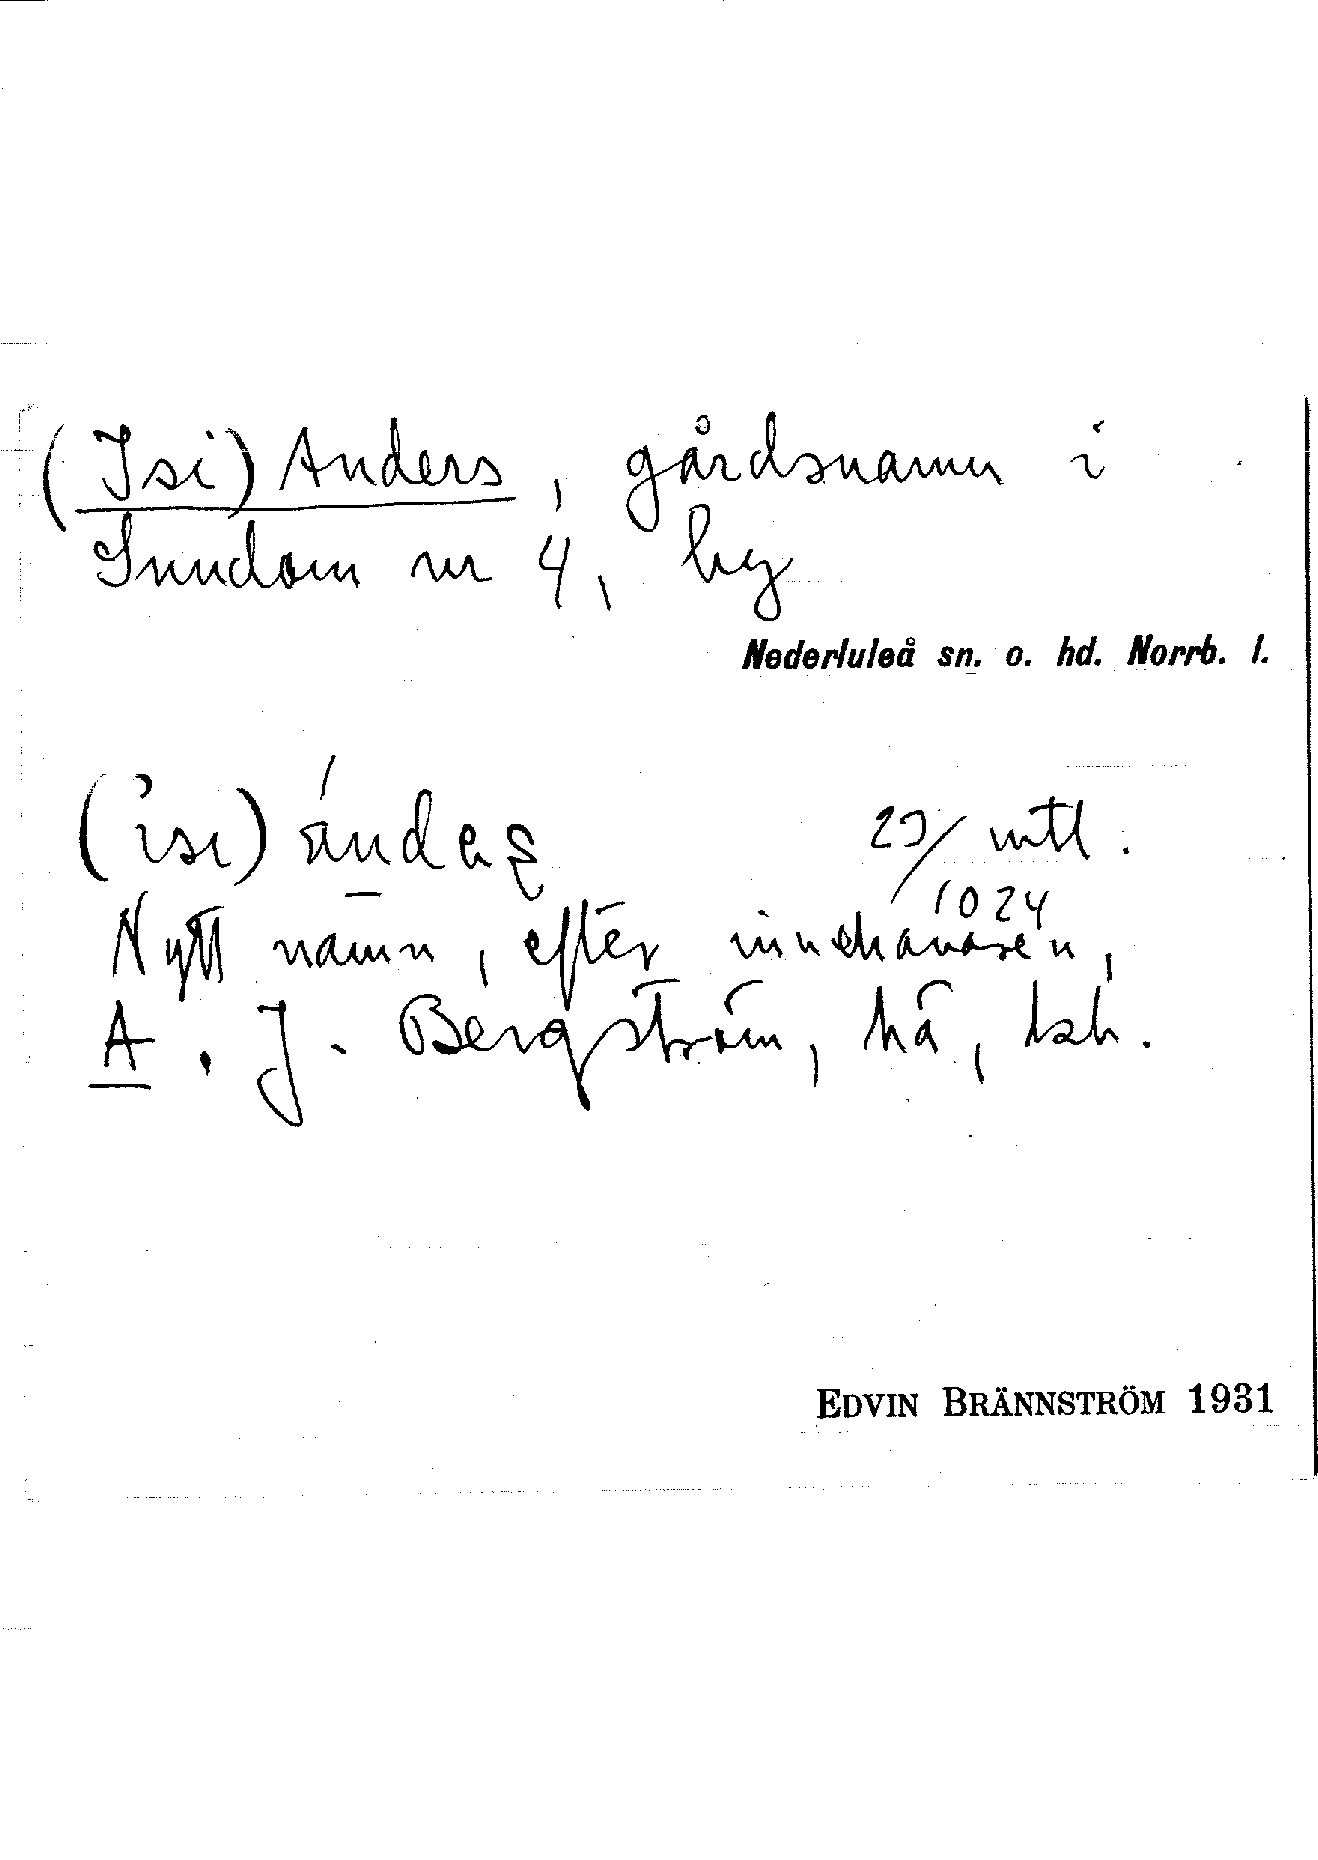 (Isi) Anders, gårdsnamn i
Sundom nr 4, by
Nederluleå sn. o. hd. Norrb. l.
(isi) ándeṣ 23/1024 mtl.
Nytt namn, efter innehavaren,
A. J. Bergström, hå, bsk.
EDVIN BRÄNNSTRÖM 1931